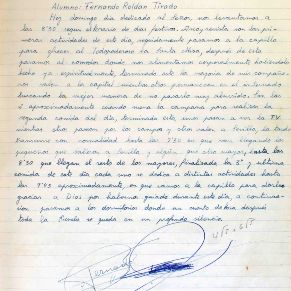 Alumno: Fernando Roldan Tirado
Hoy domingo día dedicado al Señor, nos levantamos a las
8'30 segun horario de dias festivos. Aseo, revista son las pri-
meras actividades de este día, seguidamente pasamos a la capilla
para ofrecer al Todopoderoso la Santa Misa, después de esta
pasamos al comedor donde nos alimentamos corporalmente habiéndolo
hecho ya espiritualmente, terminado este la mayoria de mis compañe-
ros salen a la capital mientras otros permanecen en el internado
buscando la mejor manera de no pasarlo muy aburridos. Son las
2 aproximadamente cuando suena la campana para realizar la
segunda comida del día, terminada esta unos pasan a ver la TV.
mientras otros pasean por los campos y otros salen a Sevilla, la tarde
transcurre con comodidad hasta las 7'30 en que van llegando los
pequeños que salieron a Sevilla y siguen hasta las
8'30 que llegan el resto de los mayores, finalizada la 3ª y ultima
comida de este día cada uno se dedica a distintas actividades hasta
las 9'45 aproximadamente, en que vamos a la capilla para darles
gracias a Dios por habernos guiado durante este día, a continua-
cion pasamos a los dormitorios donde un cuarto de hora después
toda la queda en un profundo silencio.
Fernando